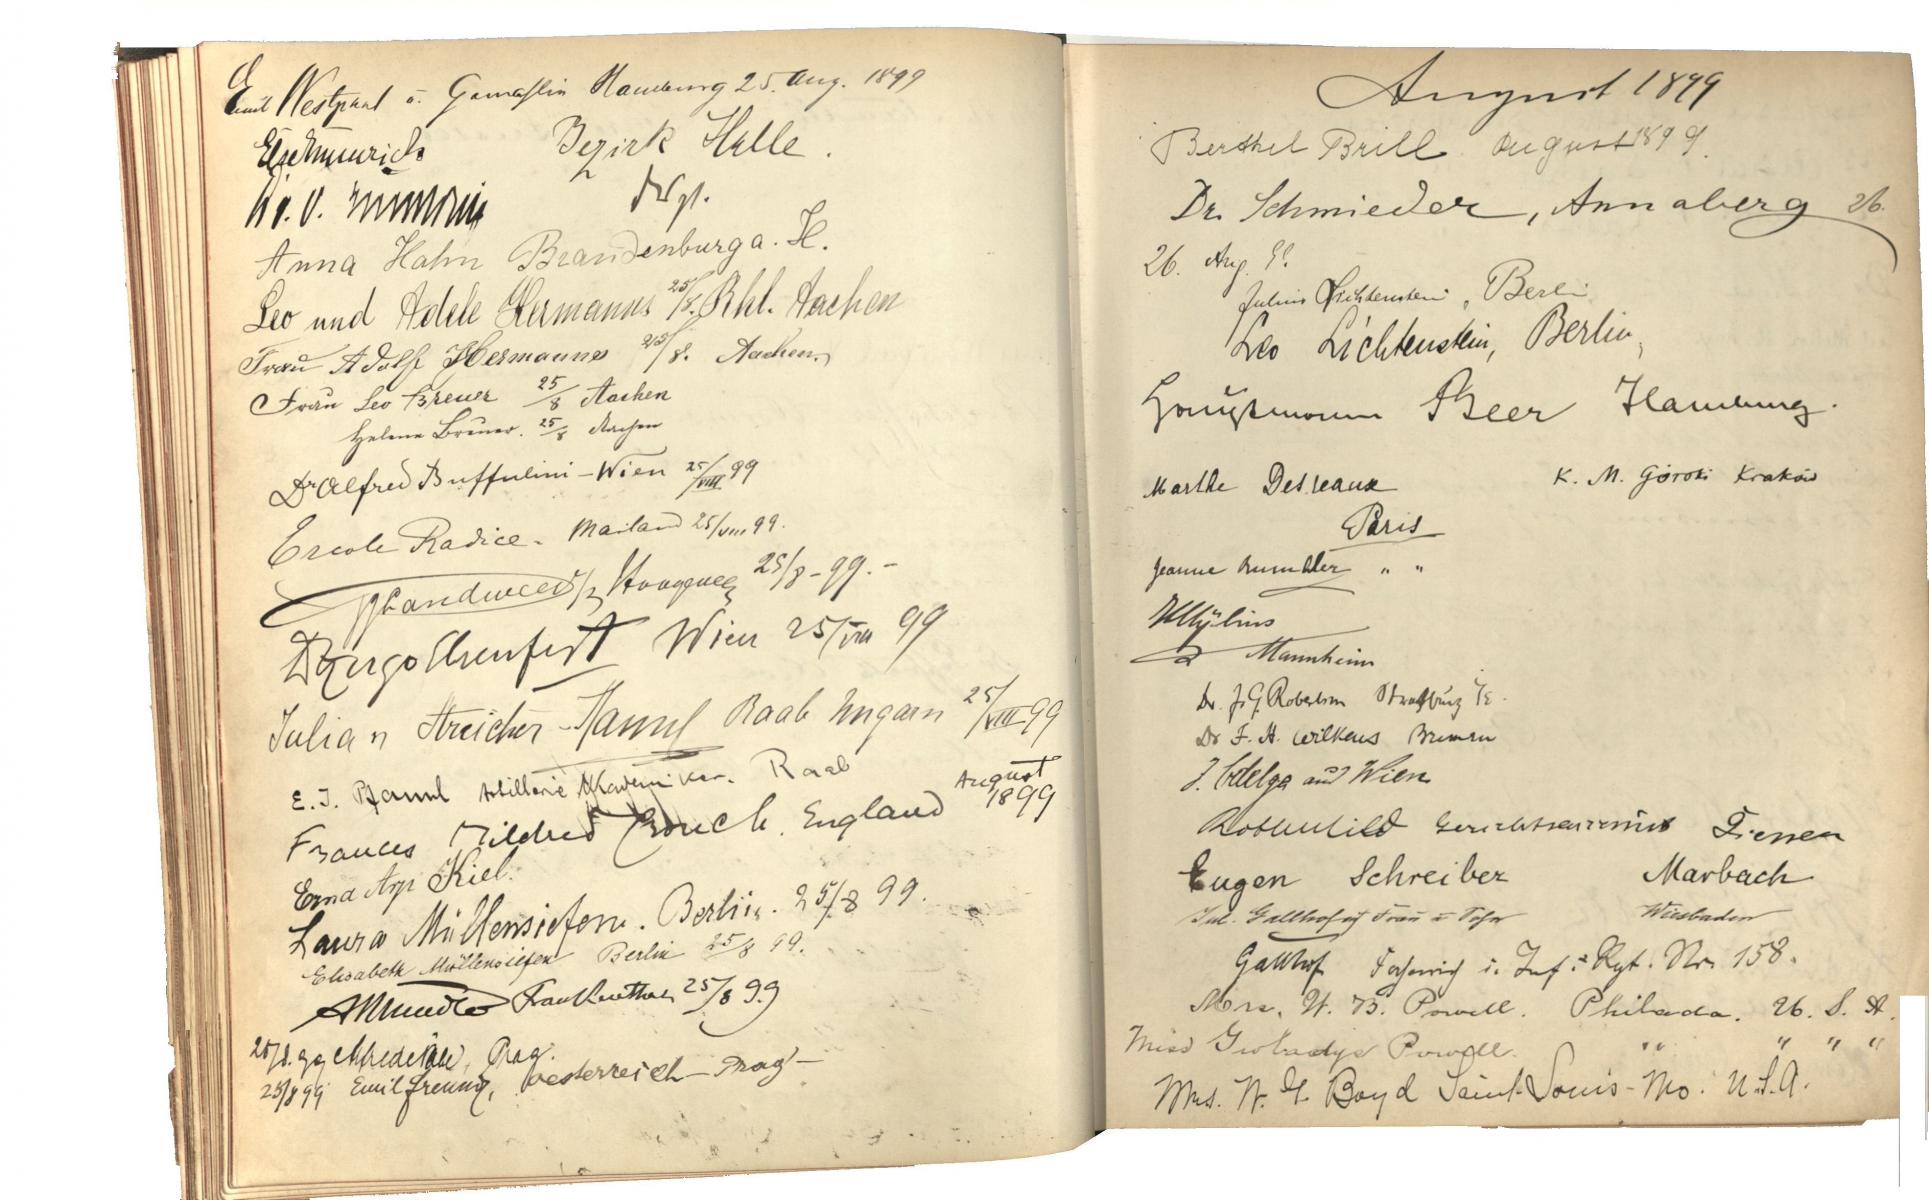 Emil Westphal u. Gemahlin Hamburg 25. Aug. 1899
Bezirk Halle.
Dr. O.
Anna Hahn Brandenburg a. H.
Leo und Adele Hermanns 25/8. Rhl. Aachen
Frau Adolf Hermanns 25/8. Aachen
Frau Leo Breuer 25/8 Aachen
Helene 25/8 Aachen
Dr Alfred Buffulini - Wien 25/VIII 99
Ercole Radice - Mailand 25/VIII 99.
25/8 - 99. -
Wien 25/VIII 99
Julian Streicher - Raab Ungarn 25/VIII 99
E. J. Pfannl Artillerie Akademiker. Raab
Frances Mildred Crouch. England August 1899
Erna Arp Kiel.
Laura Müllensiefen. Berlin. 25/8 99.
Elisabeth Müllensiefen Berlin 25/8 99.
25/8 99
25/8. 99 Prag.
25/8 99 Emil Freund, Oesterreich - Prag -
August 1899
Berthel Brill August 1899.
Dr. Schmieder, Annaberg 26.
26. Aug. 99.
Julius Lichtenstein, Berlin
Leo Lichtenstein, Berlin,
Hauptmann Beer Hamburg.
Marthe K. M. Górski Kraków
Paris
Jeanne " "
Mylius
Mannheim
Dr. J. G. Robertson Strassburg i/E.
Dr F. H. Wilkens Bremen
J. Edelga aus Wien
Rothenbild
Eugen Schreiber Marbach
Jul. Gallhof Frau u Wiesbaden
Gallhof i. Inf. Rgt. Nr. 158.
Mrs. W. B. Powell. Philada. U. S. A.
Miss Gwladys Powell. " " " "
Mrs. W. G. Boyd Saint Louis - Mo. U.S.A.